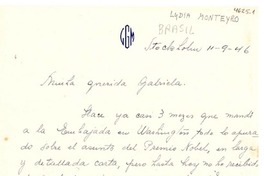 4625.1
LYDIA MONTEYRO
BRASIL
GGM
Stockholm 11-9-46
Amiga querida Gabriela.
Hace ya casi 3 mezes que mandé
a la Embajada en Washington todo lo
do sobre el asunto del Premio Nobel, en larga
y detallada carta, pero hasta hoy no he recibido